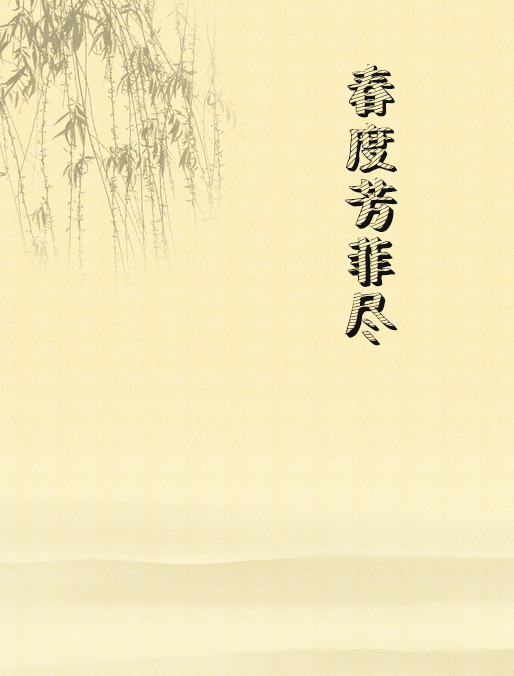 春度芳菲尽